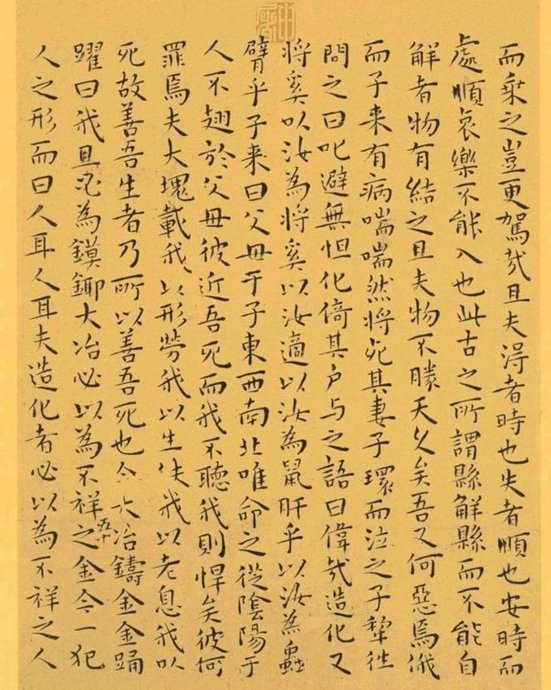 而乘之豈更駕哉且夫淂者時也失者順也安時而
處順哀樂不能入也此古之所謂縣解縣而不能自
解者物有結之且夫物不勝天久矣吾又何惡焉俄
而子来有病喘喘然將死其妻子環而泣之子犁往
問之曰叱避無怛化倚其户与之語曰偉哉造化又
將奚以汝為將奚以汝適以汝為鼠肝乎以汝為蟲
臂乎子来曰父母于子東西南北唯命之從陰陽于
人不翅於父母彼近吾死而我不聽我則悍矣彼何
罪焉夫大塊載我以形勞我以生佚我以老息我以
死故善吾生者乃所以善吾死也今大冶鑄金金踊
五十
躍曰我且必為鏌鋣大冶必以為不祥之金今一犯
人之形而曰人耳人耳夫造化者必以為不祥之人